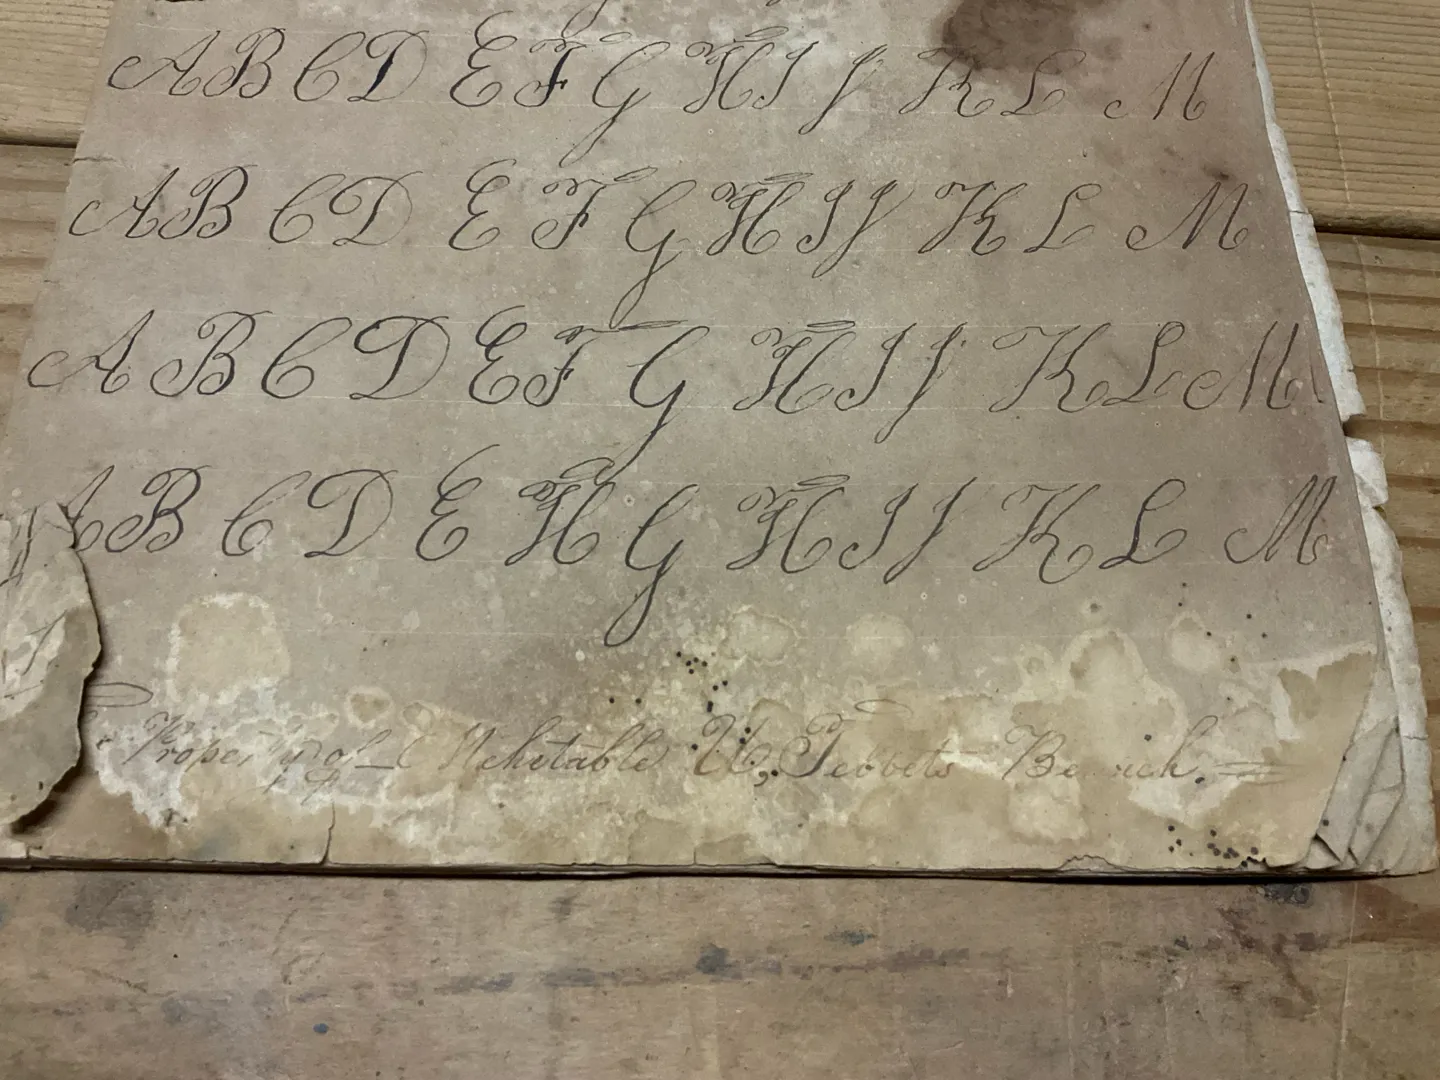 A B C D E F G H I J K L M
A B C D E F G H I J K L M
A B C D E F G H I J K L M
A B C D E H G H I J K L M
Property of Mehitable W. Tebbets Berwick.